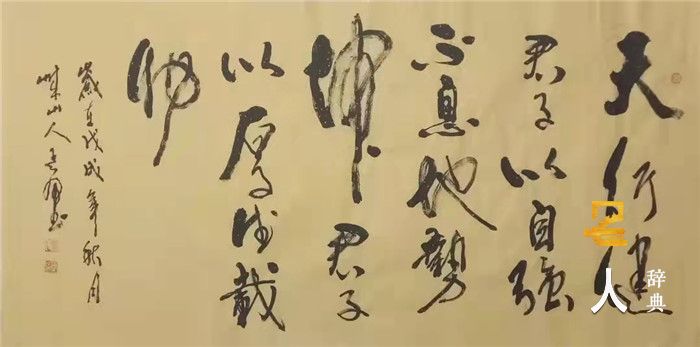 天行健
君子以自強
不息地勢
坤君子
以厚德載
物
歲在戊戌年秋月
山人
人
辞典